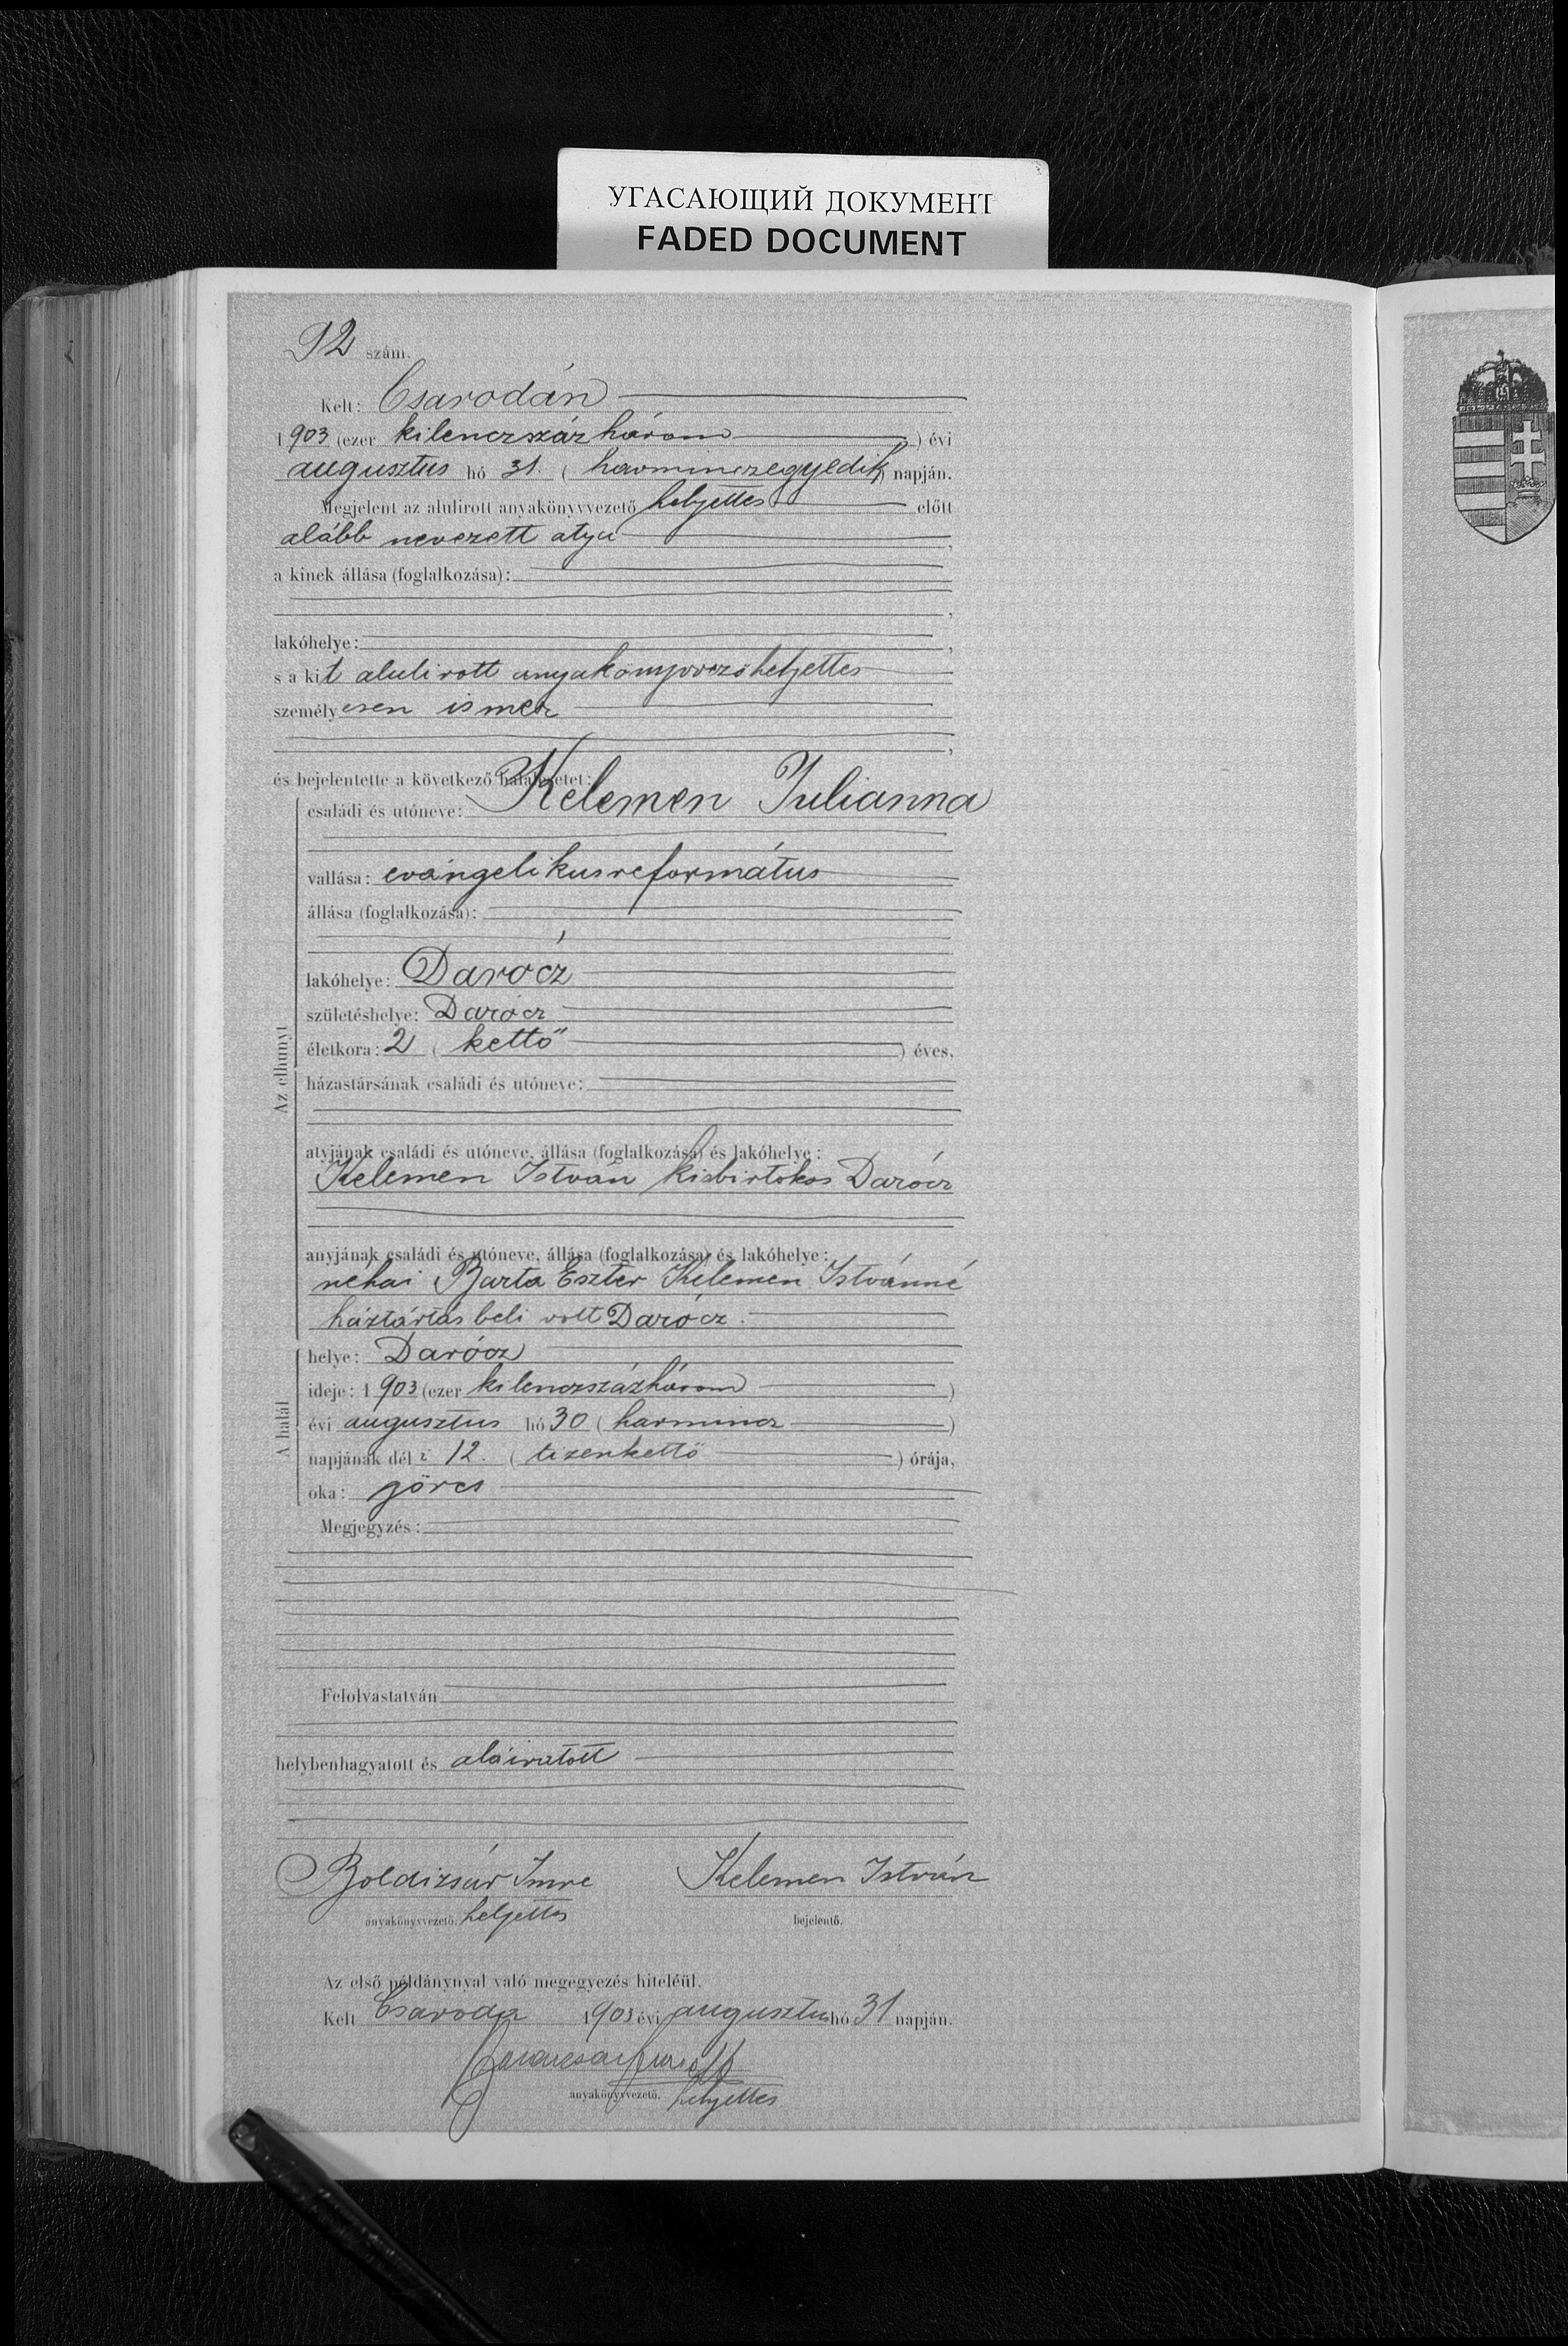 УГАСАЮЩИЙ ДОКУМЕНТ
FADED DOCUMENT
92 szám.
Kelt: Csarodán
1903 (ezer kilenczszázhárom ) évi
augusztus hó 31. ( harminczegyedik) napján.
Megjelent az alulirott anyakönyvvezető helyettes előtt
alább nevezett atya ,
a kinek állása (foglalkozása):
,
lakóhelye: ,
s a kit alulirott anyakönyvvezőhelyettes
személyesen ismer
,
és bejelentette a következő halálesetet:
családi és utóneve: Kelemen Julianna
vallása: evángelikusreformátus
állása (foglalkozása):
lakóhelye: Darócz
születéshelye: Darócz
életkora: 2 ( kettő ) éves,
házastársának családi és utóneve:
Az elhunyt
atyjának családi és utóneve, állása (foglalkozása) és lakóhelye:
Kelemen István kisbirtokos Darócz
anyjának családi és utóneve, állása (foglalkozása) és lakóhelye:
néhai Barta Eszter Kelemen Istvánné
háztártás beli volt Darócz.
helye: Darócz
ideje: 1903 (ezer kilenczszázhárom )
évi augusztus hó 30 ( harmincz )
A halál
napjának dél i 12. ( tizenkettő ) órája,
oka: görcs
Megjegyzés:
Felolvastatván
helybenhagyatott és aláiratott
Boldizsár Imre Kelemen István
anyakönyvvezető. helyettes bejelentő.
Az első példánynyal való megegyezés hiteléül.
Kelt Csaroda 1903 évi augusztus hó 31 napján.
anyakönyvvezető. helyettes